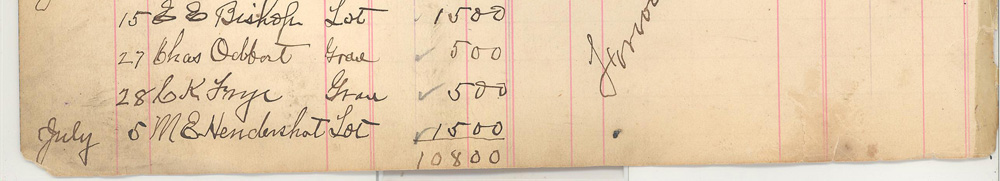 15 E E Bishop Lot ✓ 1500
27 Chas Odbort Grave ✓ 500
28 C K Frye Grave ✓ 500
July 5 M E Hendershot Lot ✓ 1500
10800